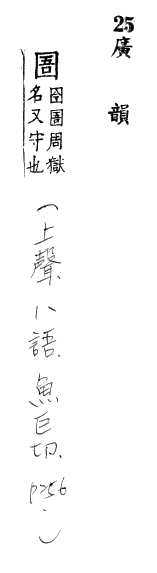 25 廣韻
圄
囹圄周獄
名又守也
(上聲、八語、魚巨切、p256.)